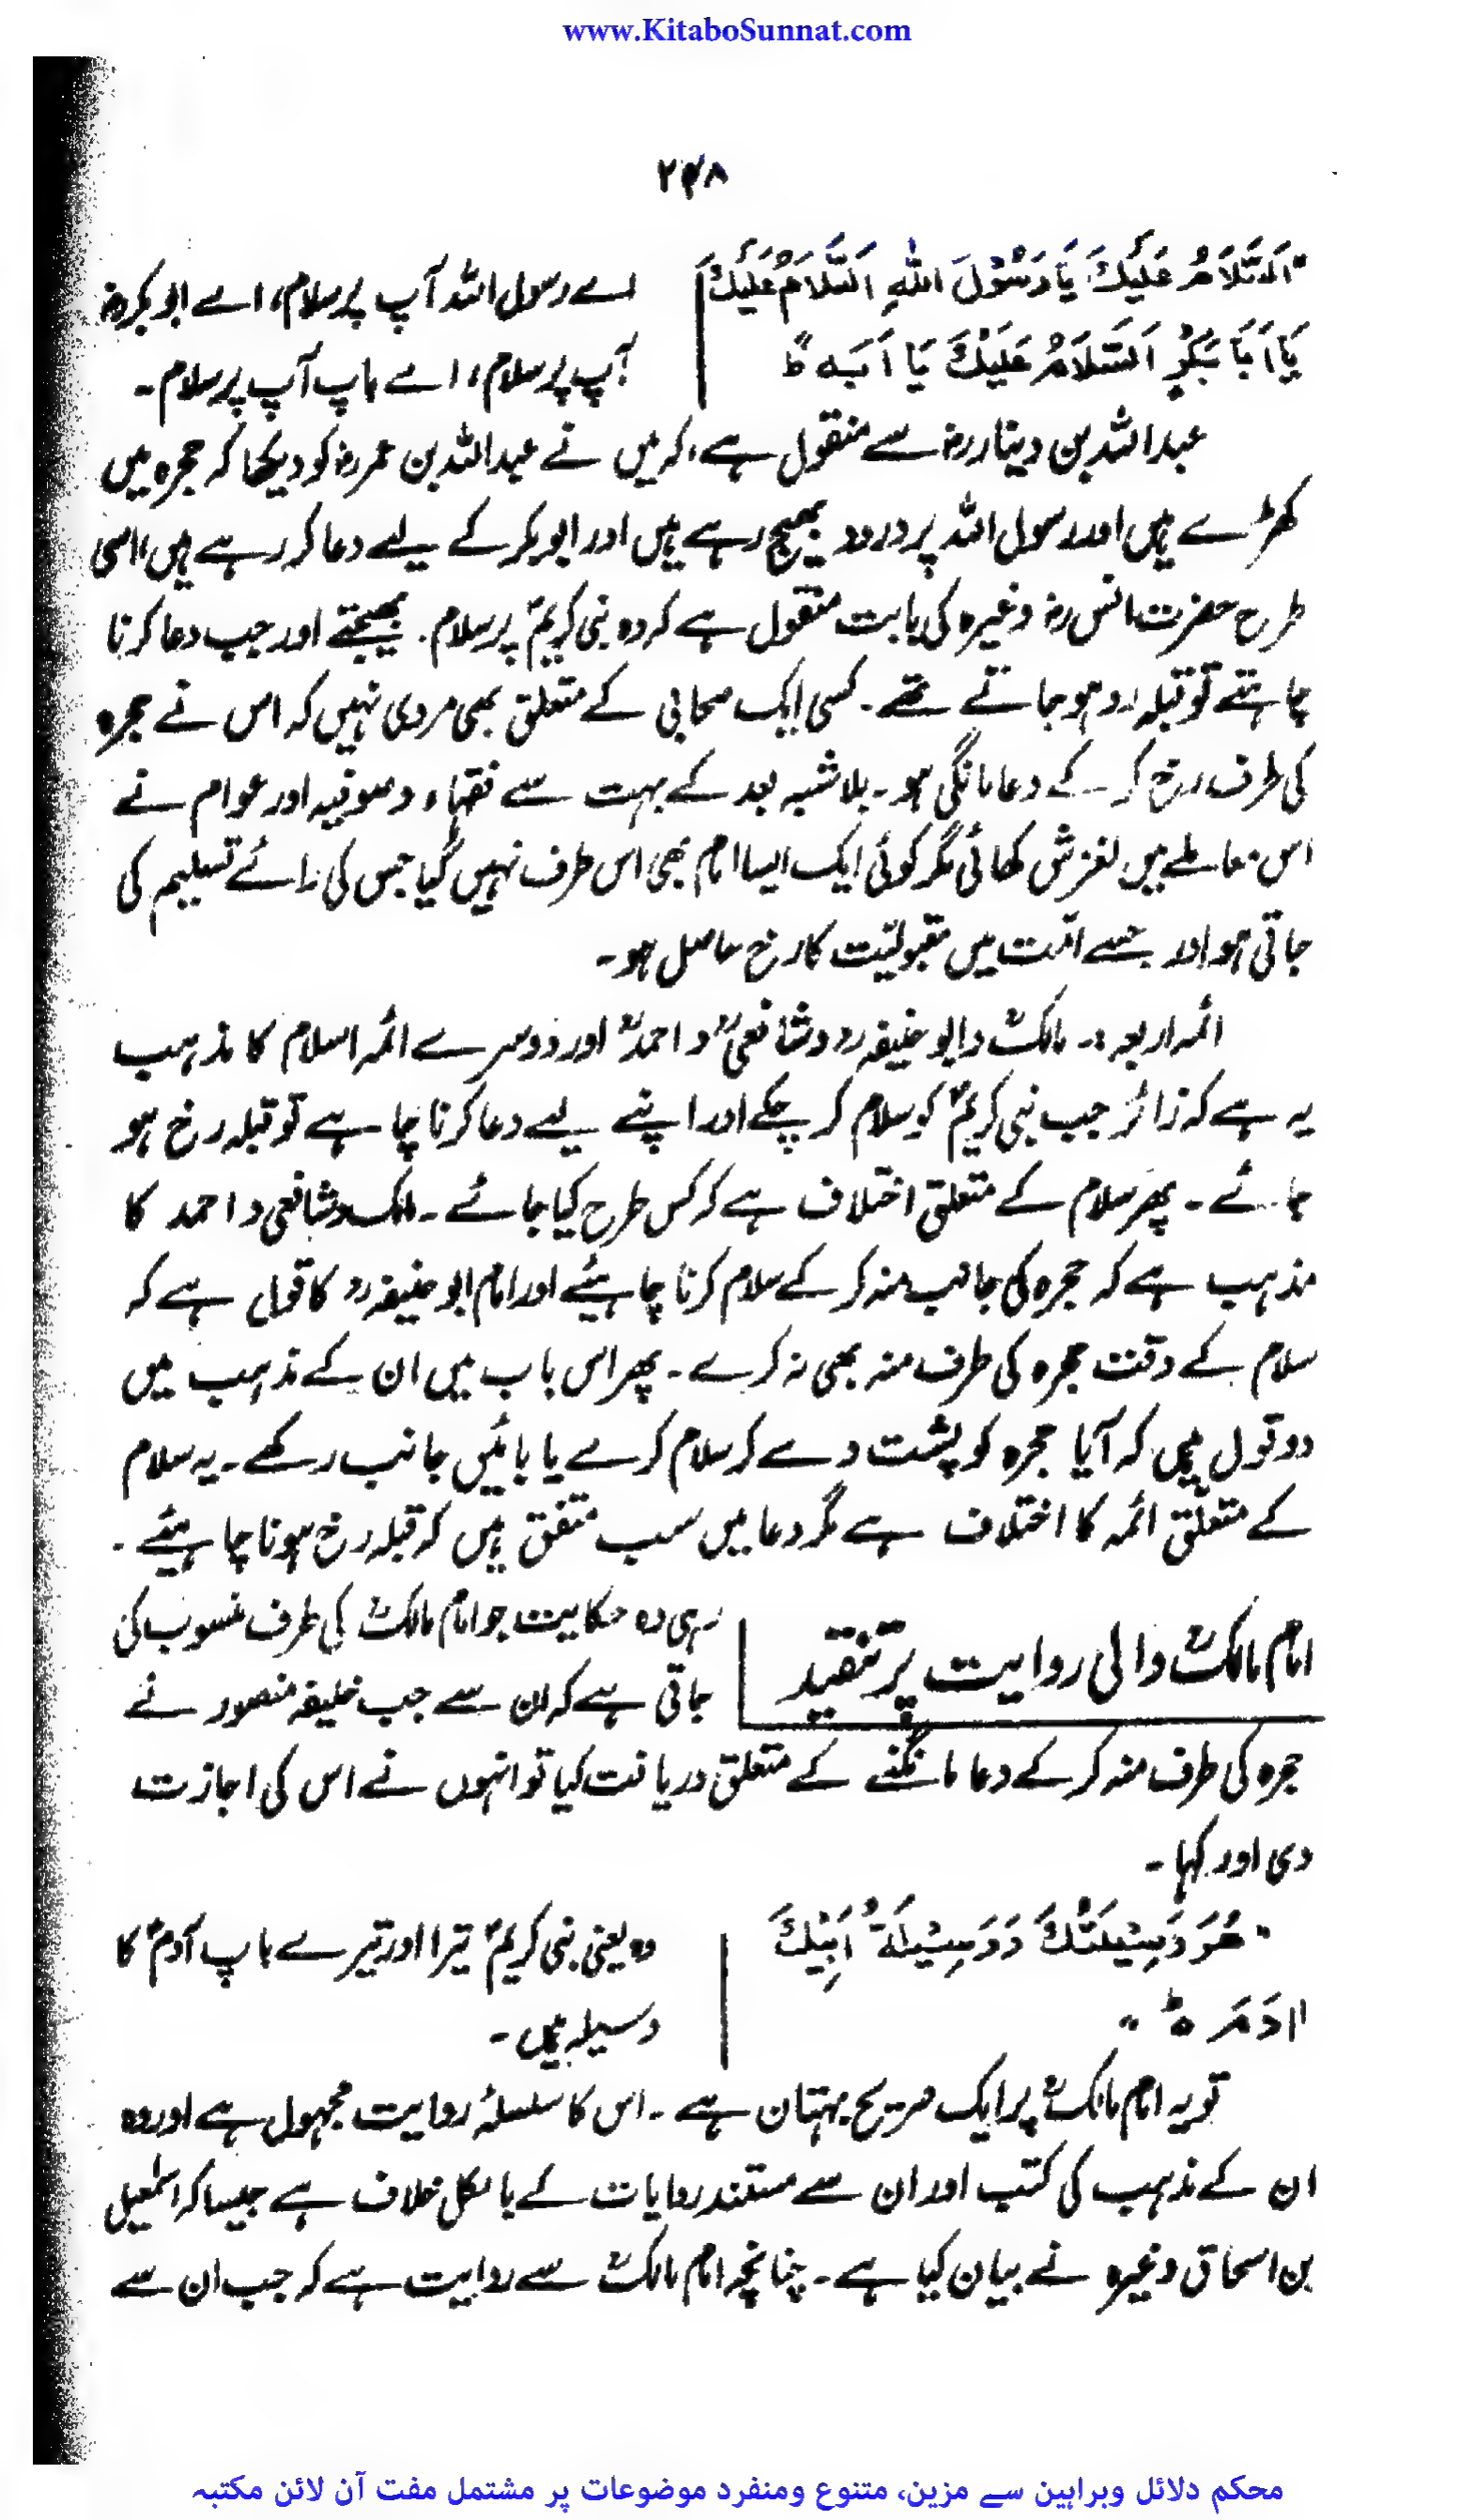 www.KitaboSunnat.com
۲۴۸
"اَلسَّلَامُ عَلَيْكَ يَا رَسُوْلَ اللهِ اَلسَّلَامُ عَلَيْكَ
يَا اَبَا بَكْرٍ اَلسَّلَامُ عَلَيْكَ يَا اَبَهْ ط
اے رسول اللہ آپ پر سلام، اے ابو بکرؓ
آپ پر سلام، اے باپ آپ پر سلام۔
عبداللہ بن دینارؒ سے منقول ہے، کہ میں نے عبداللہ بن عمرؓ کو دیکھا کہ حجرہ میں
کھڑے ہیں اور رسول اللہ پر درود بھیج رہے ہیں اور ابو بکر کے لیے دعا کر رہے ہیں، اسی
طرح حضرت انسؓ وغیرہ کی بابت منقول ہے کہ وہ نبی کریمؐ پر سلام بھیجتے اور جب دعا کرنا
چاہتے تو قبلہ رو ہو جاتے تھے۔ کسی ایک صحابی کے متعلق بھی مروی نہیں کہ اس نے حجرہ
کی طرف رخ کر کے دعا مانگی ہو۔ بلا شبہ بعد کے بہت سے فقہاء و صوفیہ اور عوام نے
اس معاملے میں لغزش کھائی مگر کوئی ایک ایسا امام بھی اس طرف نہیں گیا جس کی رائے تسلیم کی
جاتی ہو اور جسے امت میں مقبولیّت کا رخ حاصل ہو۔
ائمہ اربعہ:۔ مالکؒ و ابو حنیفہؒ و شافعیؒ و احمدؒ اور دوسرے ائمہ اسلام کا مذہب
یہ ہے کہ زائر جب نبی کریمؐ کو سلام کر چکے اور اپنے لیے دعا کرنا چاہے تو قبلہ رخ ہو
جائے۔ پھر سلام کے متعلق اختلاف ہے کہ کس طرح کیا جائے۔ مالک و شافعی و احمد کا
مذہب ہے کہ حجرہ کی جانب منہ کر کے سلام کرنا چاہیئے اور امام ابو حنیفہؒ کا قول ہے کہ
سلام کے وقت حجرہ کی طرف منہ بھی نہ کرے۔ پھر اس باب میں ان کے مذہب میں
دو قول ہیں کہ آیا حجرہ کو پشت دے کر سلام کرے یا بائیں جانب رکھے۔ یہ سلام
کے متعلق ائمہ کا اختلاف ہے مگر دعا میں سب متفق ہیں کہ قبلہ رخ ہونا چاہیئے۔
امام مالکؒ والی روایت پر تنقید
رہی وہ حکایت جو امام مالکؒ کی طرف منسوب کی
جاتی ہے کہ ان سے جب خلیفہ منصور نے
حجرہ کی طرف منہ کر کے دعا مانگنے کے متعلق دریافت کیا تو انہوں نے اس کی اجازت
دی اور کہا۔
"هُوَ وَسِيْلَتُكَ وَوَسِيْلَةُ اَبِيْكَ
اٰدَمَ ط"
وہ یعنی نبی کریمؐ تیرا اور تیرے باپ آدمؑ کا
وسیلہ ہیں۔
تو یہ امام مالکؒ پر ایک صریح بہتان ہے۔ اس کا سلسلۂ روایت مجہول ہے اور وہ
ان کے مذہب کی کتب اور ان سے مستند روایات کے بالکل خلاف ہے جیسا کہ اسمٰعیل
بن اسحاق وغیرہ نے بیان کیا ہے۔ چنانچہ امام مالکؒ سے روایت ہے کہ جب ان سے
محکم دلائل وبراہین سے مزین، متنوع ومنفرد موضوعات پر مشتمل مفت آن لائن مکتبہ